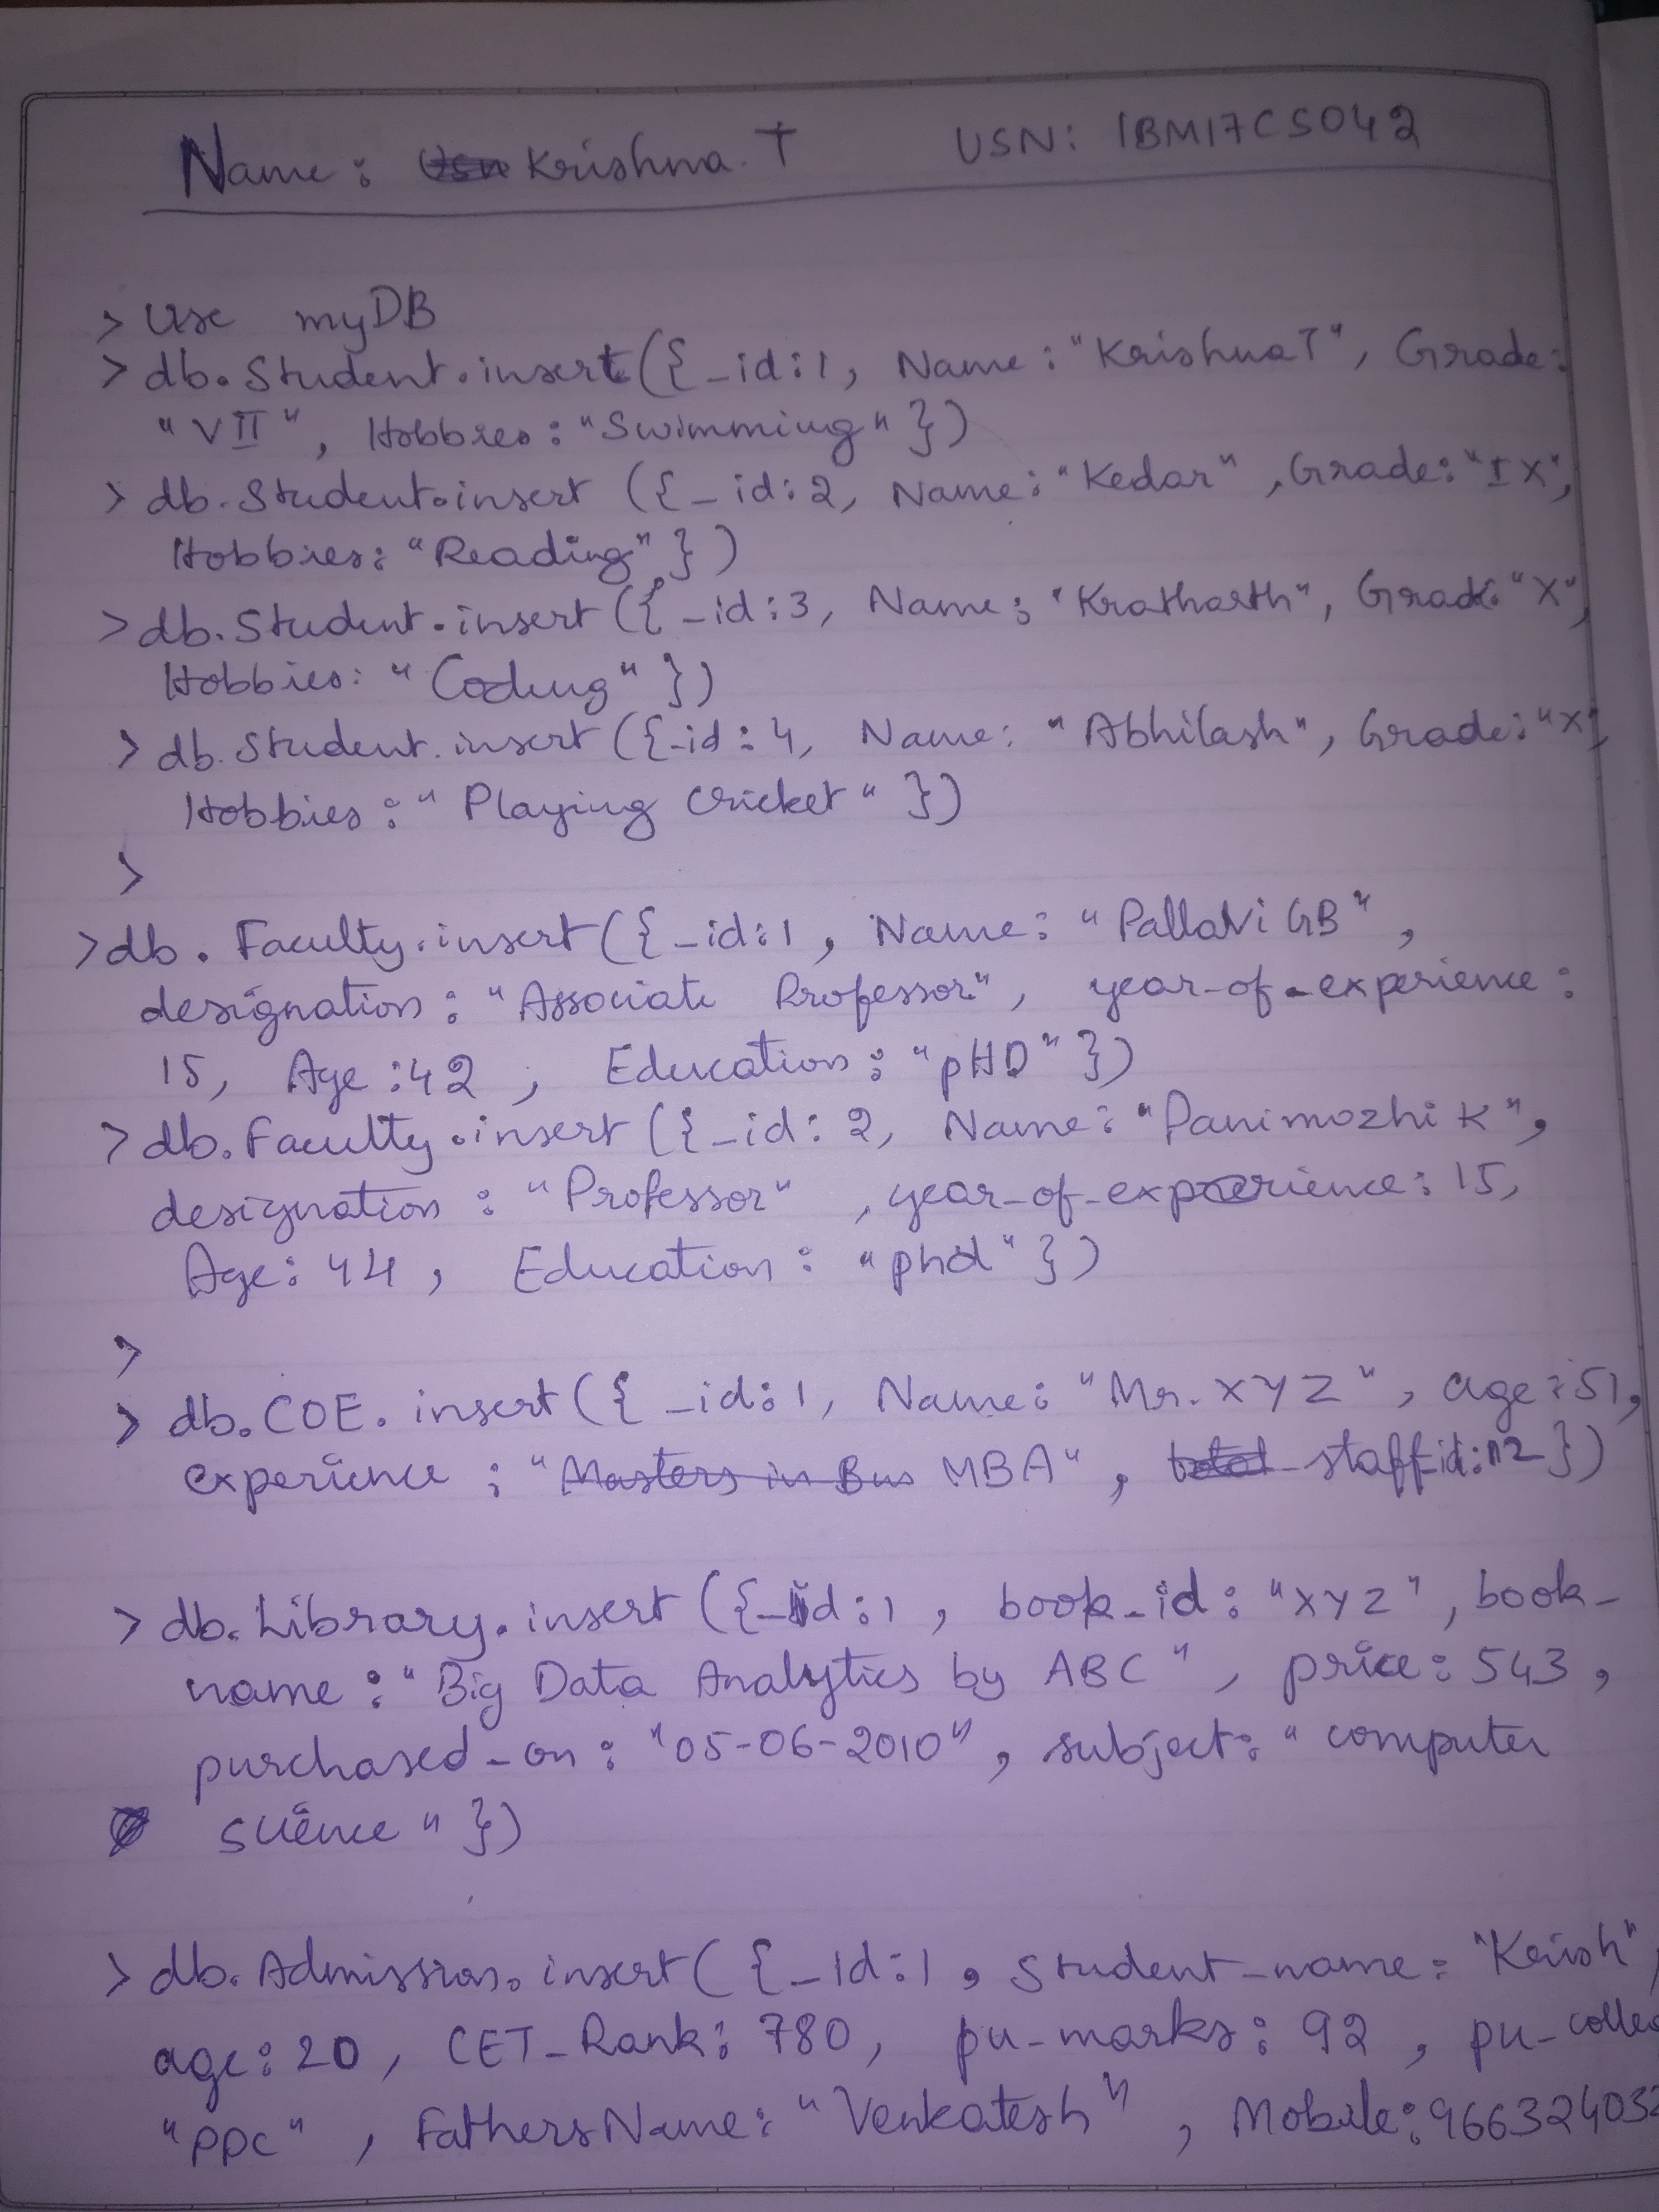 Name: Krishna. T USN: 1BM17CS042
> Use myDB
> db.Student.insert({_id:1, Name:"KrishnaT", Grade:
"VII", Hobbies:"Swimming"})
> db.Student.insert ({_id:2, Name:"Kedar", Grade:"IX",
Hobbies:"Reading"})
> db.Student.insert({_id:3, Name:"Krathasth", Grade:"X",
Hobbies:"Coding"})
> db.Student.insert({_id:4, Name:"Abhilash", Grade:"X",
Hobbies:"Playing Cricket"})
>
> db.Faculty.insert({_id:1, Name:"Pallavi GB",
designation:"Associate Professor", year-of-experience:
15, Age:42, Education:"pHD"})
> db.Faculty.insert({_id:2, Name:"Panimozhi K",
designation:"Professor", year-of-experience:15,
Age:44, Education:"phd"})
>
> db.COE.insert({_id:1, Name:"Mr. XYZ", age:51,
experience:"MBA", staff_id:12})
> db.Library.insert({_id:1, book_id:"XYZ", book_
name:"Big Data Analytics by ABC", price:543,
purchased_on:"05-06-2010", subject:"computer
science"})
> db.Admission.insert({_Id:1, Student_name:
age:20, CET_Rank:780, pu_marks:92, pu_colle
"PPC", FathersName:"Venkatesh", Mobile:966324032